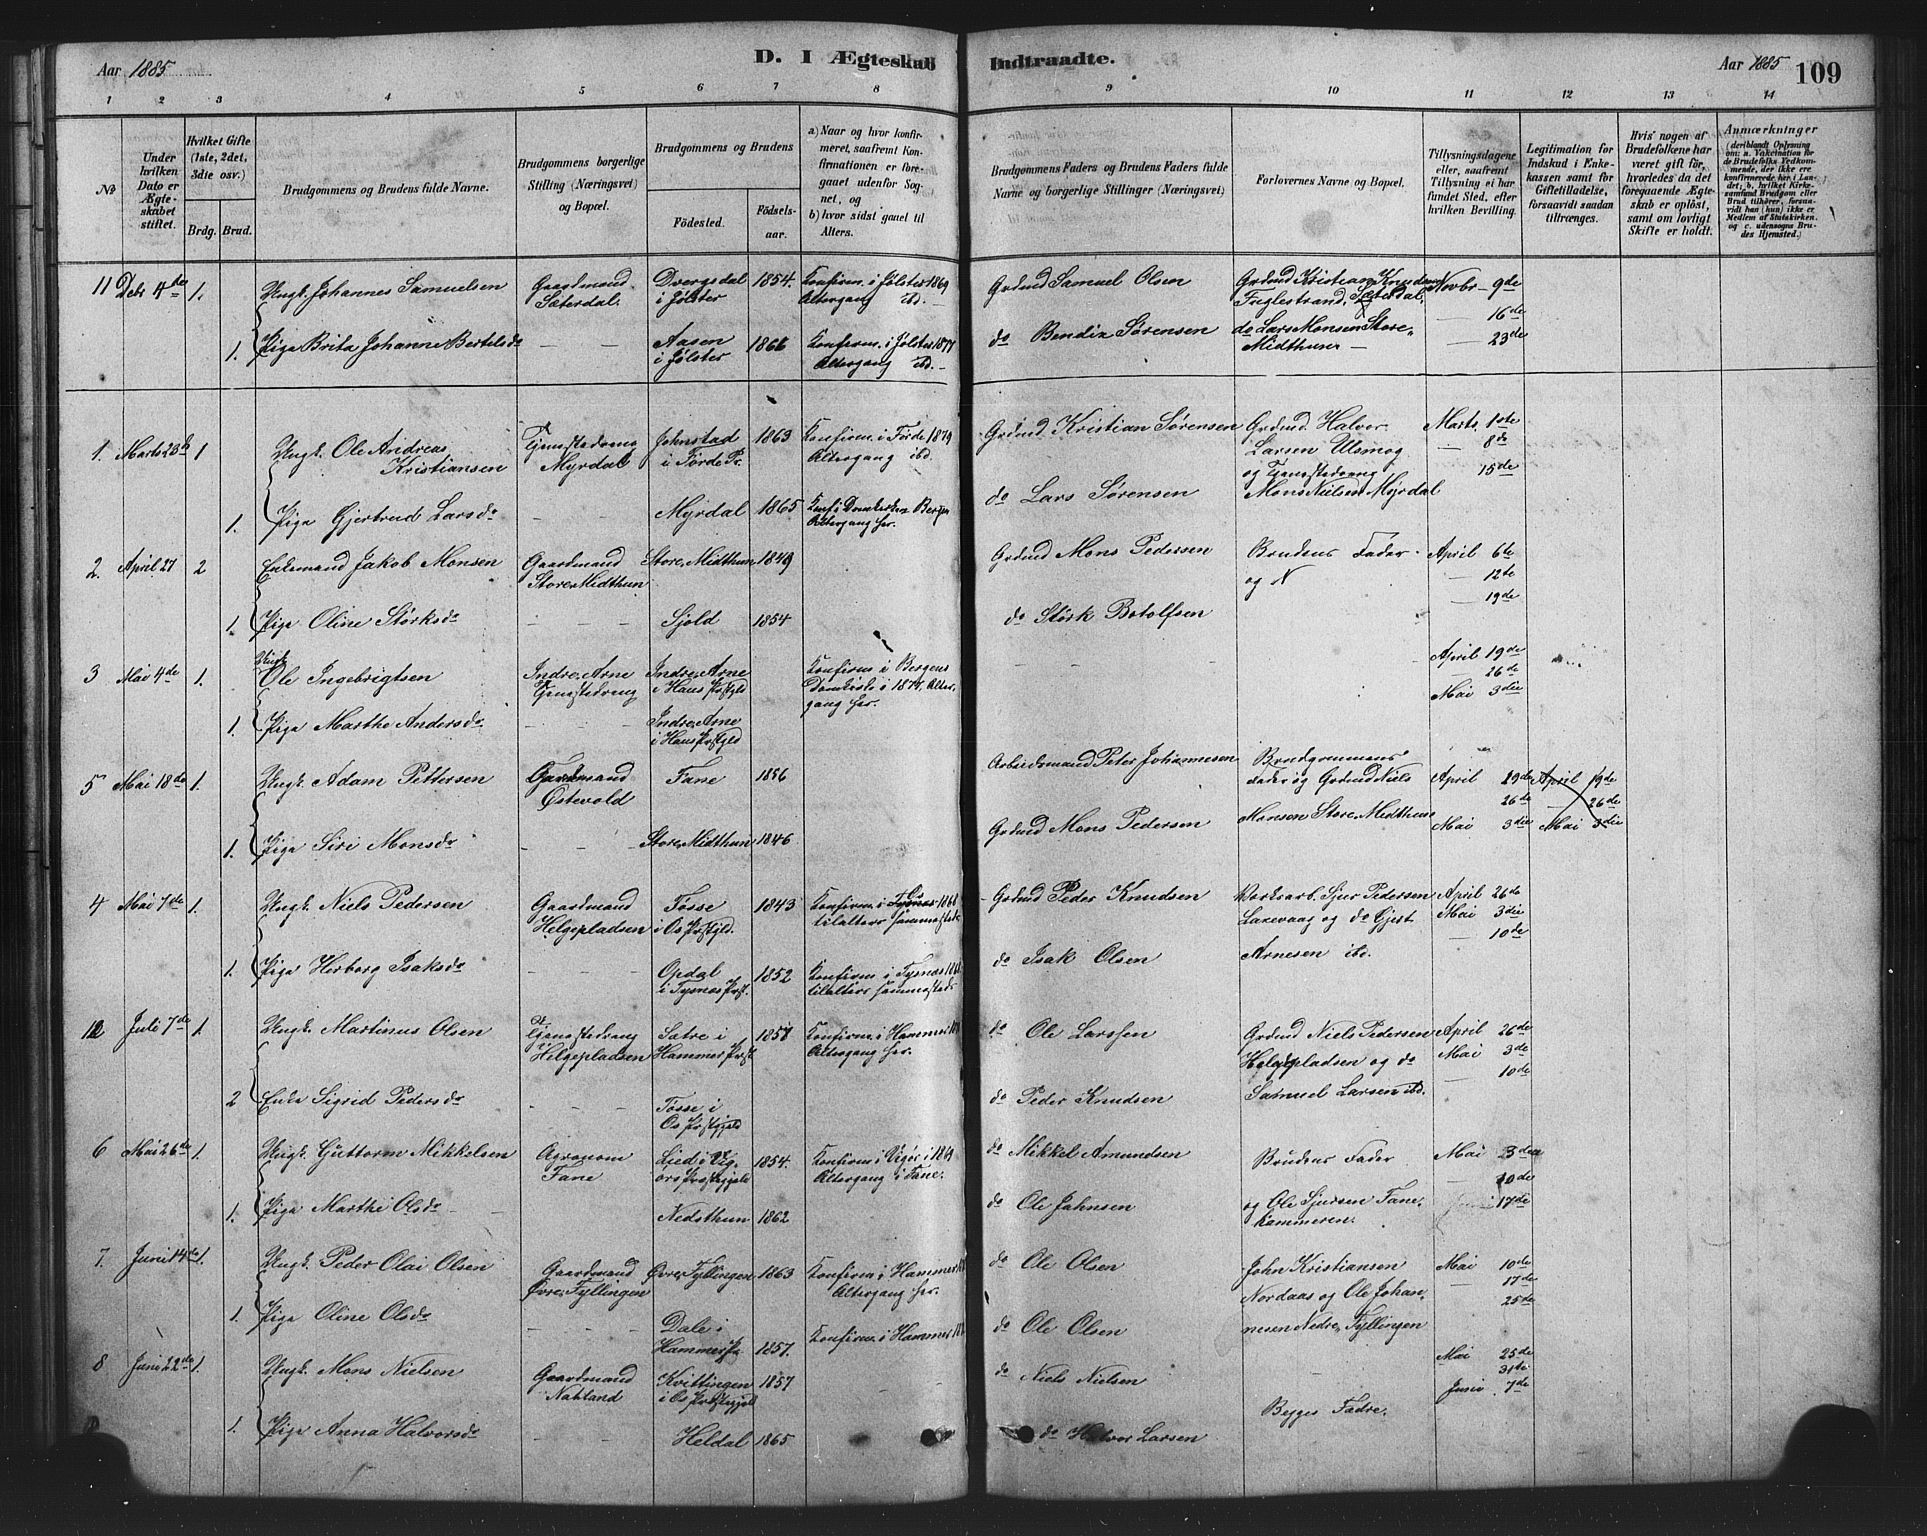 Aar 1885
D. I Ægteskab Indtraadte.
Aar 1885 109
1 2 3 4 5 6 7 8 9 10 11 12 13 14
№
Under hvilken Dato er Ægteskabet stiftet.
Hvilket Gifte (1ste, 2det, 3die osv.)
Brdg. Brud.
Brudgommens og Brudens fulde Navne.
Brudgommens borgerlige Stilling (Næringsvei) og Bopæl.
Brudgommens og Brudens
Födested. Födselsaar.
a) Naar og hvor konfirmeret, saafremt Konfirmationen er foregaaet udenfor Sognet, og
b) hvor sidst gaaet til Alters.
Brudgommens Faders og Brudens Faders fulde Navne og borgerlige Stillinger (Næringsvei)
Forlovernes Navne og Bopæl.
Tillysningsdagene eller, saafremt Tillysning ei har fundet Sted, efter hvilken Bevilling.
Legitimation for Indskud i Enkekassen samt for Giftetilladelse, forsaavidt saadan tiltrænges.
Hvis nogen af Brudefolkene har været gift för, hvorledes da det foregaaende Ægteskab er oplöst, samt om lovligt Skifte er holdt.
Anmærkninger (deriblandt Oplysning om: a. Vakcination for de Brudefolks Vedkommende, der ikke ere konfirmerede her i Landet; b. hvilket Kirkesamfund Brudgom eller Brud tilhörer, forsaavidt han (hun) ikke er Medlem af Statskirken, og c. udensogns Brudes Hjemsted.)
11 Debr 4de 1. Ungk. Johannes Samuelsen Gaardmand Sæterdal. Dvergsdal i Jölster 1854. Konfirm. i Jölster 1869 Altergang ibd. Grdmd Samuel Olsen Grdmd Kristian Knudsen Fuglestrand, Sæterdal, Novbr 9de
16de
1. Pige Brita Johanne Bertelsdr — — Aasen i Jölster 1861 Konfirm. i Jölster 1877 Altergang ibd. do Bendix Sörensen do Lars Monsen Store Midthun — 23de
1. Marts 23de 1 Ungk. Ole Andreas Kristiansen Tjenestedreng Myrdal Johnstad i Förde Pr. 1863 Konfirm. i Förde 1879 Altergang ibd. Grdmd Kristian Sörensen Grdmd Halvor Larsen Ulsmog og Tjenestedreng Marts 1ste
8de
15de
1. Pige Gjertrud Larsdr — — Myrdal 1865 Konf. i Domkirken Bergen Altergang her. do Lars Sörensen Mons Nielsen Myrdal
2. April 27 2 Enkemand Jakob Monsen Gaardmand Store Midthun Store Midthun 1849 Grdmd Mons Pedersen Brudens Fader og N April 6te
12te
19de
1. Pige Oline Störksdr — — Sjold 1854 do Störk Botolfsen
3 Mai 4de 1. Ungk Ole Ingebrigtsen Indre Arne Tjenestedreng Indre Arne i Haus Prstgjld Konfirm. i Bergens Domkirke i 1877. Altergang her. — — — April 19de
26de
Mai 3die
1 Pige Marthe Andersdr — — Indre Arne i Haus Prstgld
5 Mai 18de 1. Ungk. Adam Pettersen Gardmand Östevold Fane 1856 Arbeidsmand Peter Johannesen Brudgommens Fader og Grdmd Niels April 19de April 19de
26de 26de
1. Pige Siri Monsdr — — Store Midthun 1846 Grdmd Mons Pedersen Monsen Store Midthun Mai 3die Mai 3die
4 Mai 7de 1. Ungk. Niels Pedersen Gaardmand Helgepladsen Tösse i Os Prstgld. 1843 Konfirm. i Os 1860 tilalters sammesteds Grdmd Peder Knudsen Værksarb. Sjur Pedersen Laxevaag og do Gjest April 26de
Mai 3die
10de
1. Pige Herborg Isaksdr — — Opdal i Tysnæs Prst. 1852 Konfirm. i Tysnæs tilalters sammesteds do Isak Olsen Arnesen ibd.
12 Juli 7de 1. Ungk. Martinus Olsen Tjenestedreng Helgepladsen Sætre i Hammer Prst 1858 Konfirm. i Hammer Altergang her. do Ole Larssen Grdmd Niels Pedersen Helgepladsen og do April 26de
Mai 3de
10de
2 Enke Sigrid Pedersdr — — Tösse i Os Prstgjeld do Peder Knudsen Samuel Larsen ibd.
6 Mai 26de 1. Ungk. Guttorm Mikkelsen Agronom Fane Lied i Vigörs Præstegjeld 1854. Konfirm. i Vigör i 1869 Altergang i Fane. do Mikkel Amundsen Brudens Fader Mai 3die
10de
1. Pige Marthe Olsdr — Nedsthun 1862 do Ole Jahnsen og Ole Sjursen Fanekammeren. 17de
7. Juni 14de 1. Ungk. Peder Olai Olsen Gaardmand Övre Fyllingen Övre Fyllingen 1863 Konfirm. i Hammer Altergang her. do Ole Olsen John Kristiansen Nordaas og Ole Johan- Mai 10de
17de
25de
1. Pige Oline Olsdr — — Dale i Hammer Pr 1857 Konfirm. i Hammer do Ole Olsen nesen Nedre Fyllingen
8 Juni 22de 1. Ungk. Mons Nielsen Gaardmand Natland Kvittingen i Os Præstegjeld 1857 — — do Niels Nielsen Mai 25de
31te
Juni 7de
Begges Fædre.
1. Pige Anna Halvorsdr Heldal 1865 do Halvor Larsen